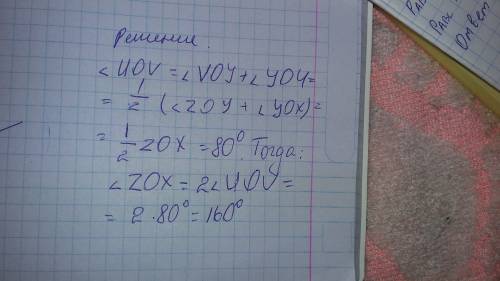 Решение.
∠UOV = ∠VOY + ∠YOU =
= 1/2 (∠ZOY + ∠YOX) =
= 1/2 ZOX = 80°. Тогда:
∠ZOX = 2∠UOV =
= 2 · 80° = 160°
Ответ